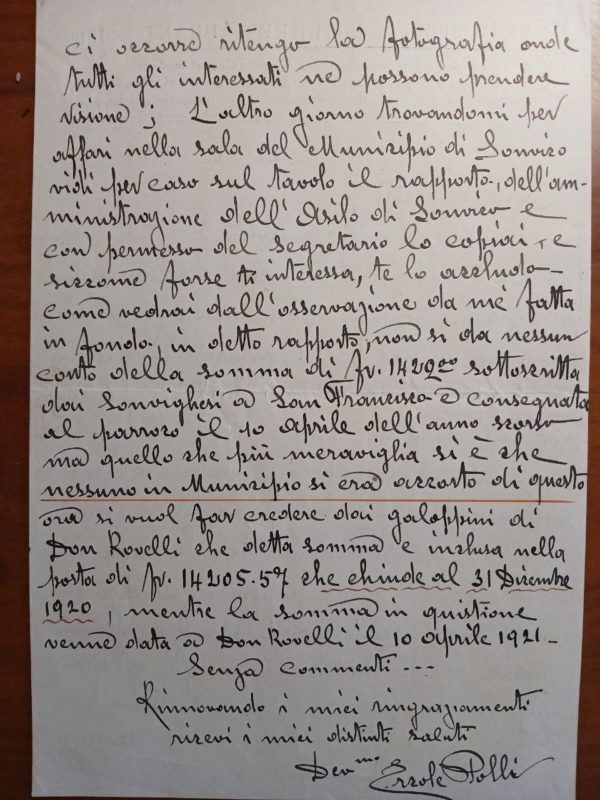 ci occorre ritengo la fotografia onde
tutti gli interessati ne possono prendere
visione; L'altro giorno trovandomi per
affari nella sala del Municipio di Sonvico
vidi per caso sul tavolo il rapporto, dell'am-
ministrazione dell'Asilo di Sonvico e
con permesso del segretario lo copiai, e
siccome forse ti interessa, te lo accludo-
come vedrai dall'osservazione da me fatta
in fondo, in detto rapporto, non si da nessun
conto della somma di fr. 1429.00 sottoscritta
dai Sonvighesi a San Francisco e consegnata
al parroco il 10 Aprile dell'anno scorso
ma quello che più meraviglia si è che
nessuno in Municipio si era accorto di questo
ora si vuol far credere dai galoppini di
Don Rovelli che detta somma è inclusa nella
posta di fr. 14205.57 che chiude al 31 Dicembre
1920, mentre la somma in quistione
venne data a Don Rovelli il 10 aprile 1921-
Senza commenti ---
Rinnovando i miei ringraziamenti
ricevi i miei distinti saluti
Dev.mo Ercole Polli